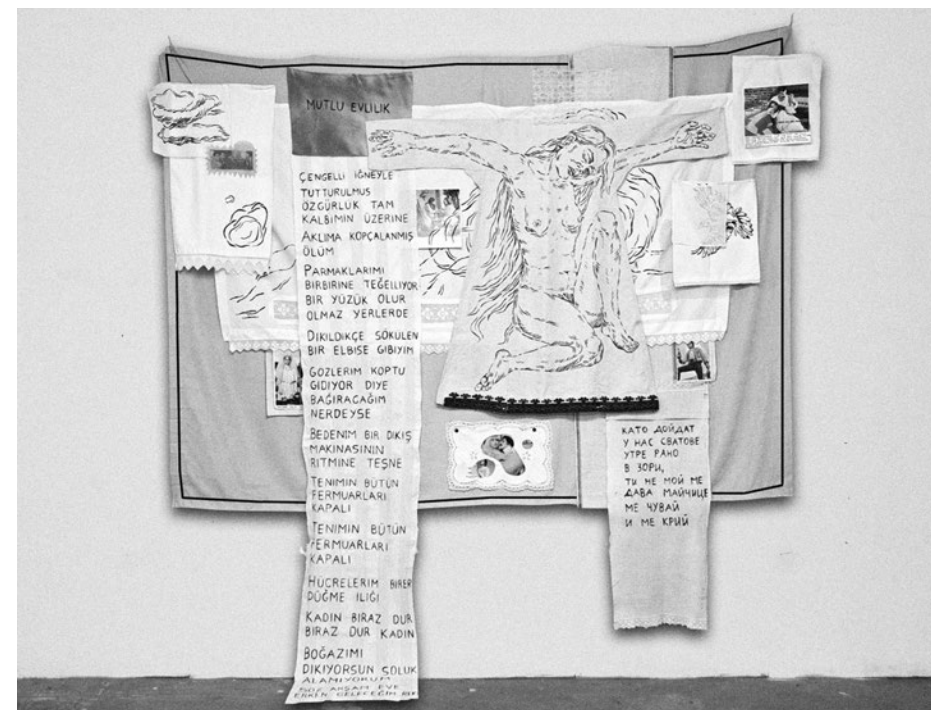 MUTLU EVLILIK
ÇENGELLI IĞNEYLE
TUTTURULMUS
ÖZGÜRLÜK TAM
KALBIMIN ÜZERINE
AKLIMA KOPÇALANMIŞ
ÖLÜM
PARMAKLARIMI
BIRBIRINE TEĞELLIYOR
BIR YÜZÜK OLUR
OLMAZ YERLERDE
DIKILDIKÇE SÖKÜLEN
BIR ELBISE GIBIYIM
GÖZLERIM KOPTU
GIDIYOR DIYE
BAĞIRACAĞIM
NERDEYSE
BEDENIM BIR DIKIŞ
MAKINASININ
RITMINE TEŞNE
TENIMIN BÜTÜN
FERMUARLARI
KAPALI
TENIMIN BÜTÜN
FERMUARLARI
KAPALI
HÜCRELERIM BIRER
DÜĞME ILIĞI
KADIN BIRAZ DUR
BIRAZ DUR KADIN
BOĞAZIMI
DIKIYORSUN SOLUK
ALAMIYORUM
AKŞAM EVE
ERKEN GELECEĞIM
КАТО ДОЙДАТ
У НАС СВАТОВЕ
УТРЕ РАНО
В ЗОРИ,
ТИ НЕ МОЙ МЕ
ДАВА МАЙЧИЦЕ
МЕ ЧУВАЙ
И МЕ КРИЙ